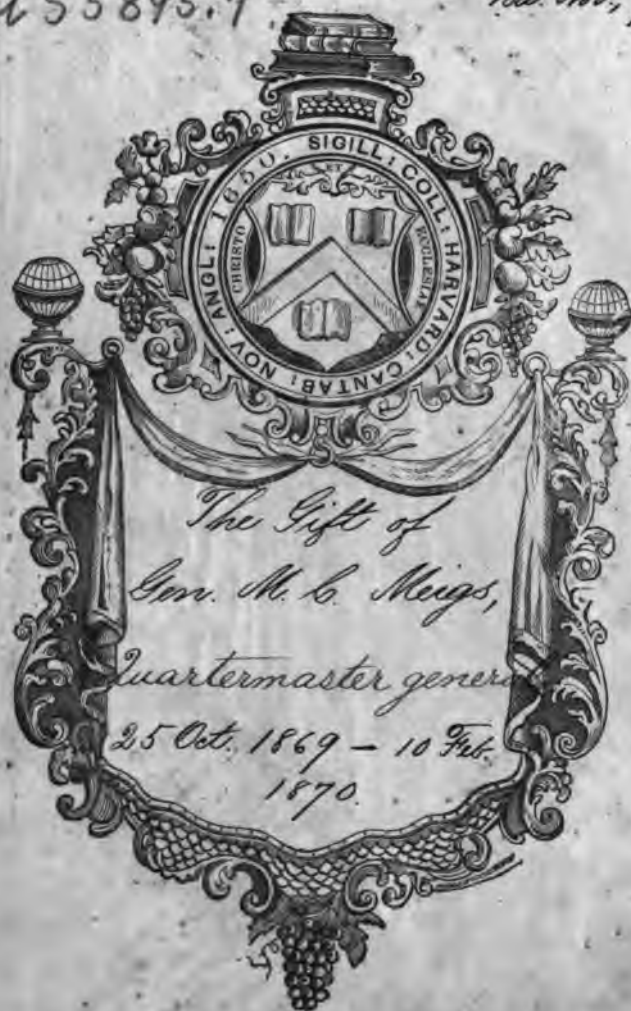 SIGILL: COLL: HARVARD: CANTAB: NOV: ANGL: 1650.
CHRISTO ET ECCLESIAE
The Gift of
Gen. M. C. Meigs,
Quartermaster general
25 Oct. 1869 – 10 Feb.
1870.